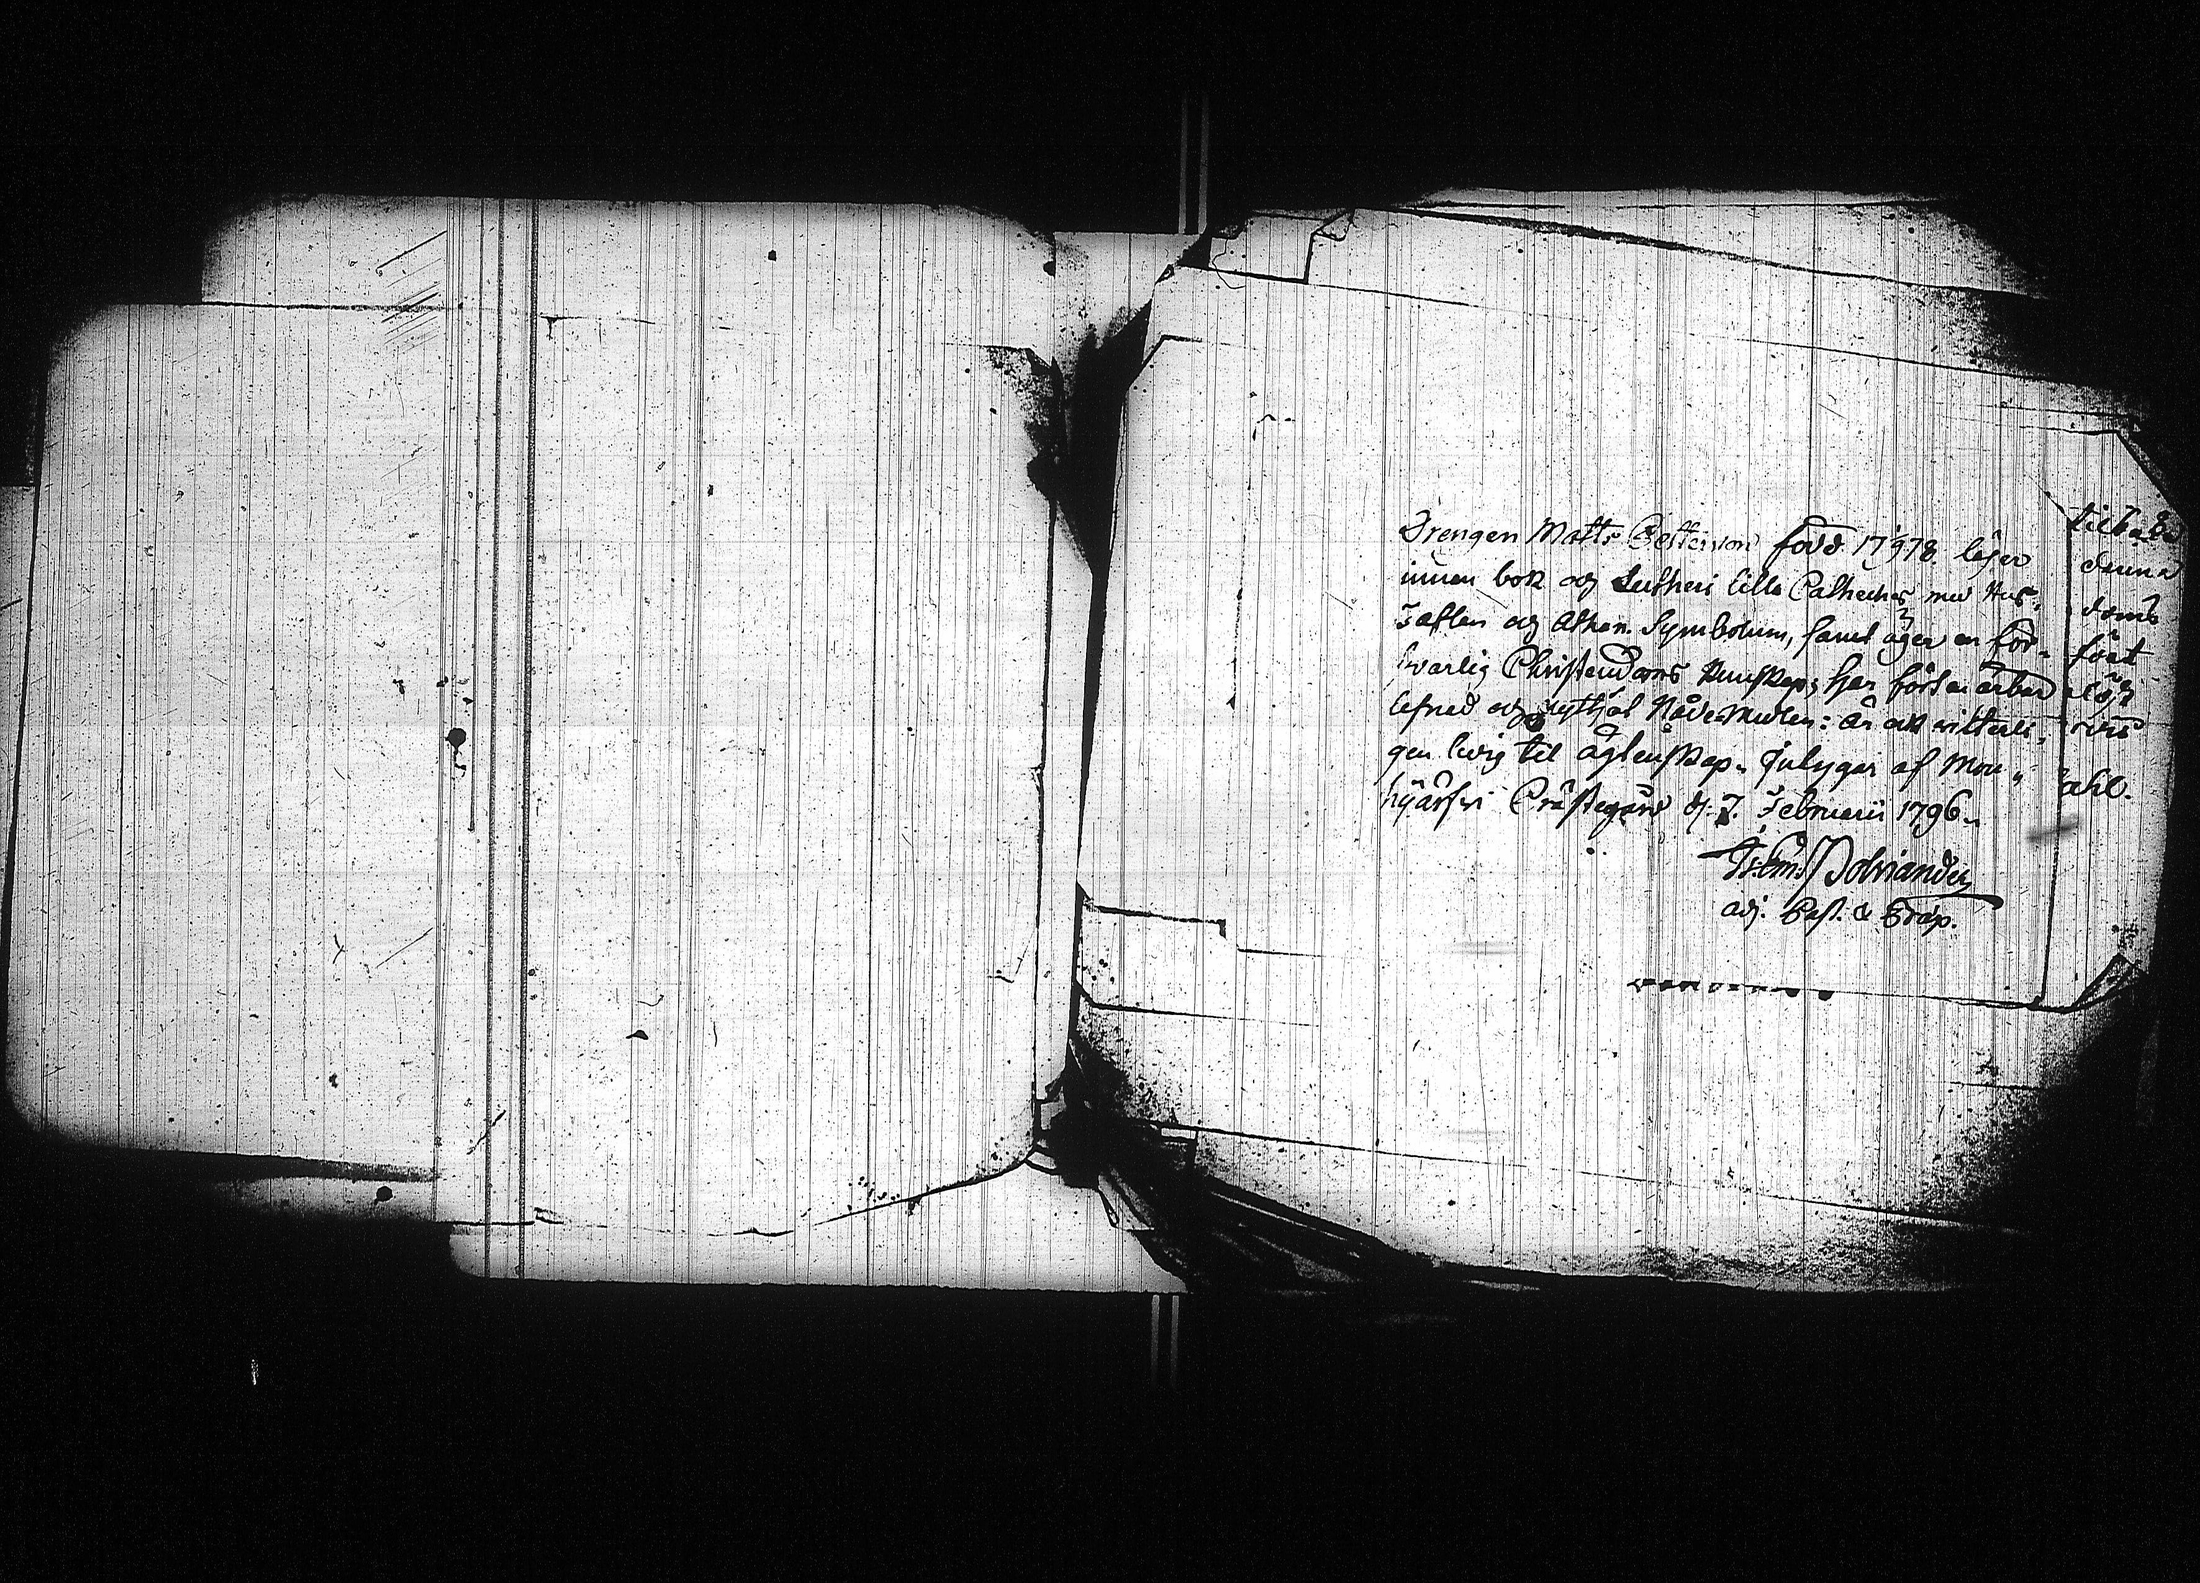 Drengen Matts Pettersson född 17 1/9 78. läser
innan bok og Lutheri lilla Catheches med Hus,
Taflan og Athan. Symbolum, samt äger en för-
svarlig Christendoms Kunskap; har fört en ärbar
lefnad og nyttjat Nådemedlen: är ock vitterli,
gen ledig til ägtenskap. intygar af Mou,
hijärfvi Prästegård d: 7. Februarii 1796.
Polviander
adj. Past. & Præp.
tilbaka
denna
doms
fört
ledig